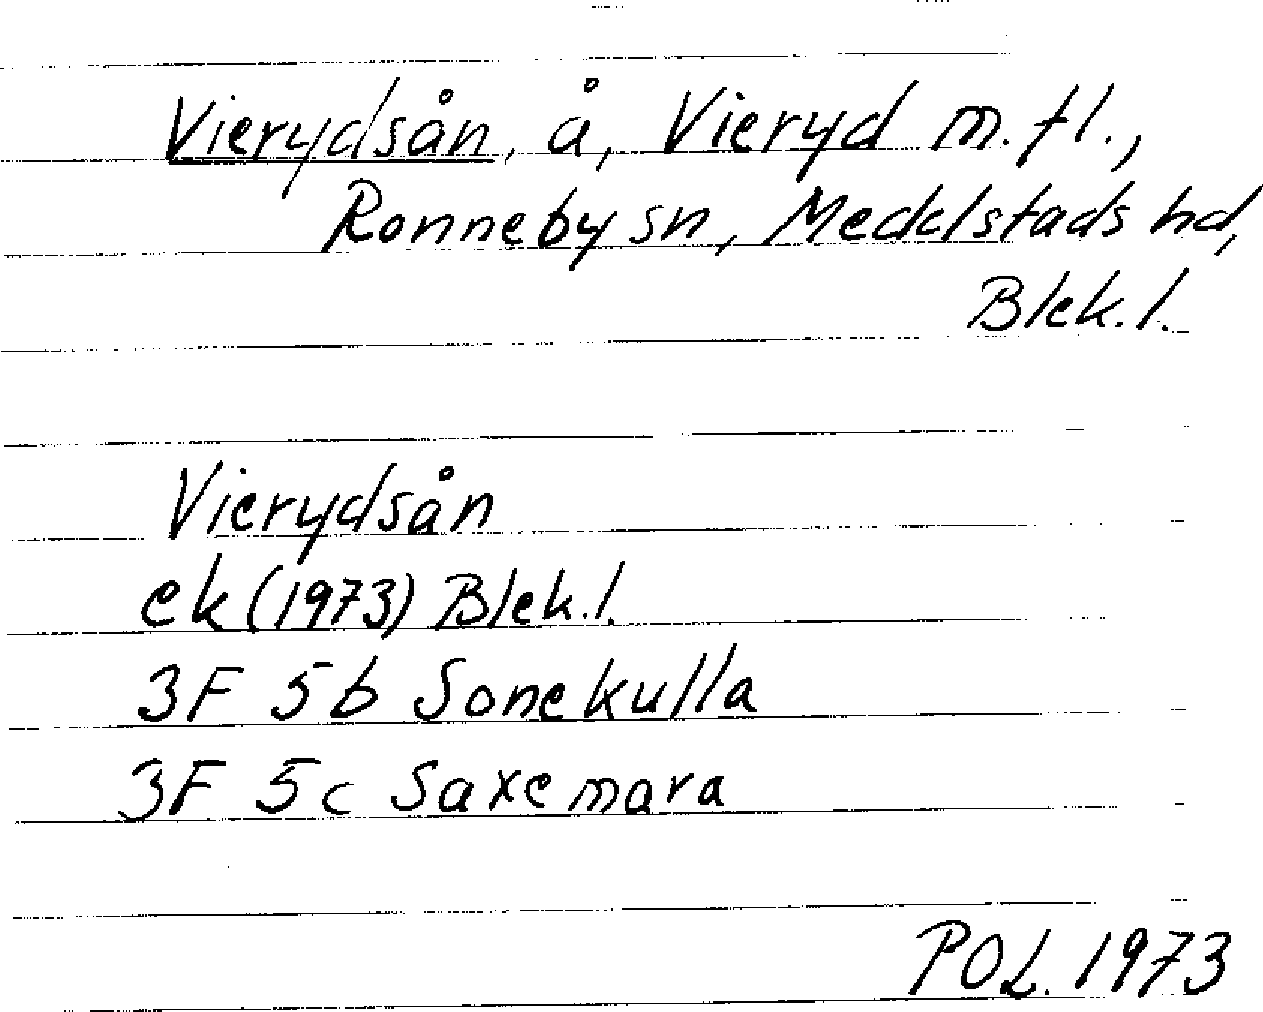 Vierydsån, å, Vieryd m.fl.,
Ronneby sn, Medelstads hd,
Blek.l.
Vierydsån
ek (1973) Blek.l.
3F 5b Sonekulla
3F 5c Saxemara
POL. 1973